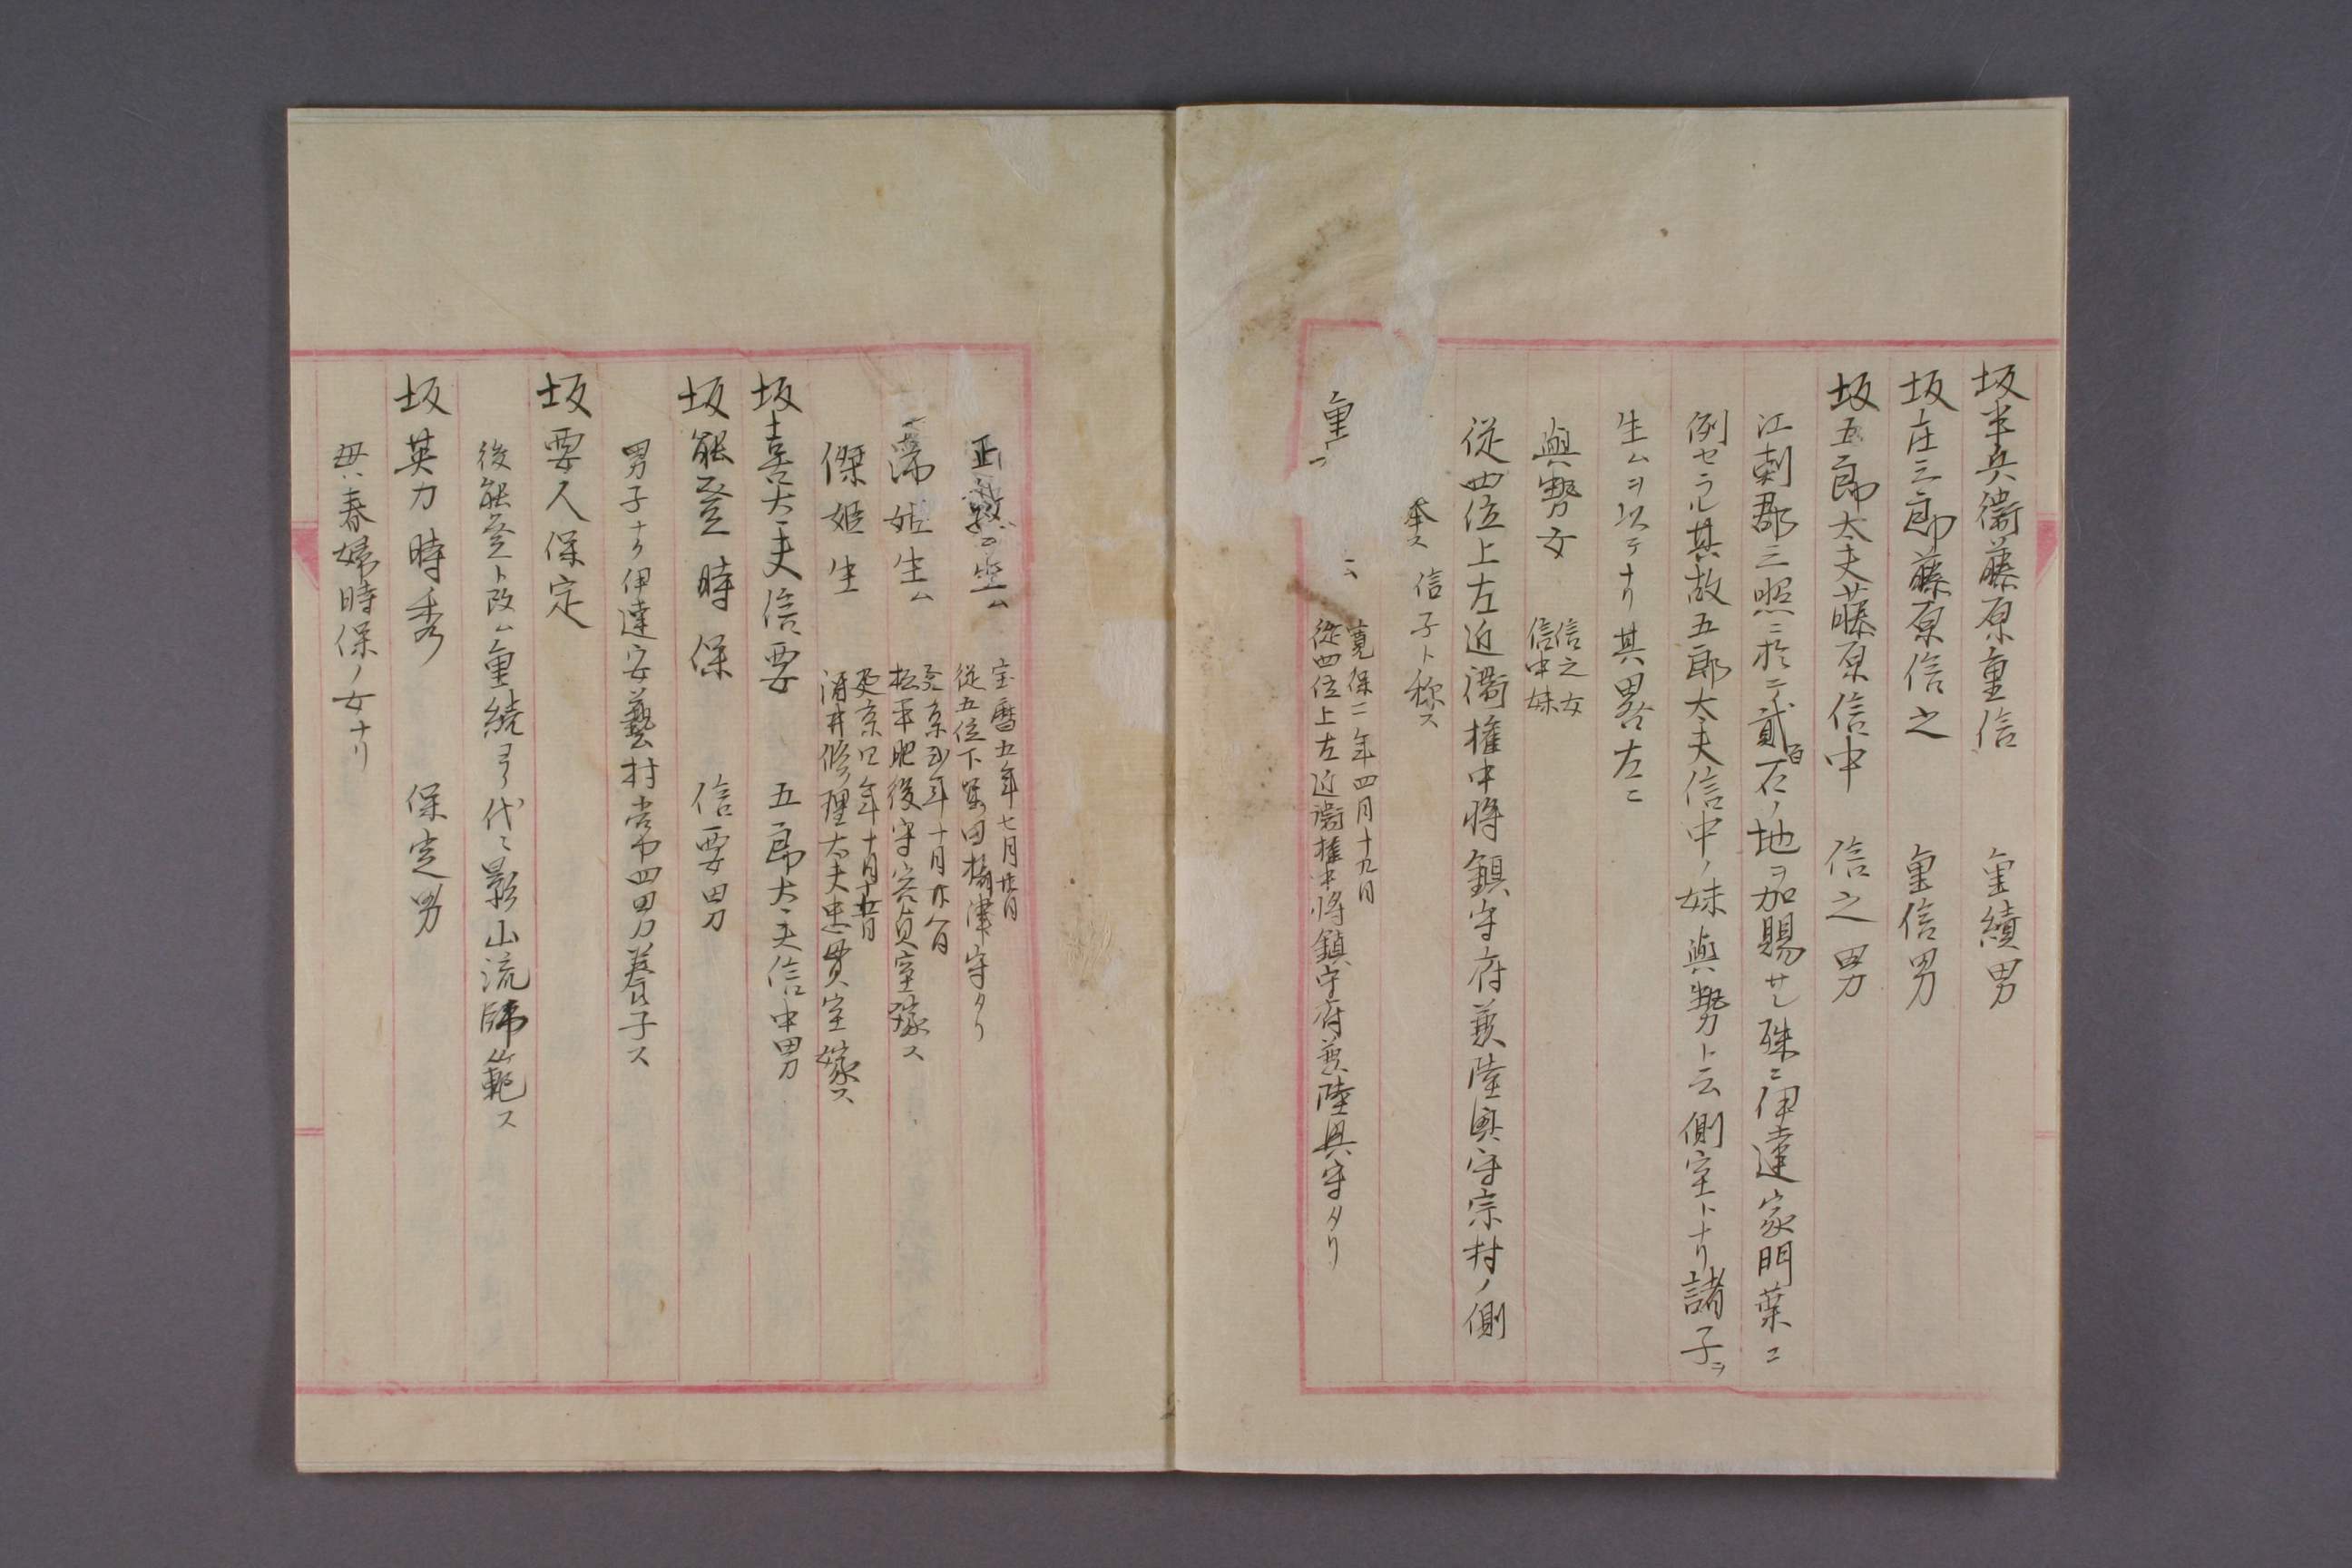 坂半兵衞藤原重信　重績男
坂庄三郎藤原信之　重信男
坂五郎太夫藤原信中　信之男
江刺郡三照ニ於テ貳百石ノ地ヲ加賜サレ殊ニ伊達家門葉ニ
例セラル其故五郎太夫信中ノ妹與勢ト云側室トナリ諸子ヲ
生ムヲ以テナリ其畧左ニ
與勢女　信之女
信中妹
従四位上左近衞権中将鎮守府兼陸奥守宗村ノ側
奉ス　信子ト称ス
重
寛保二年四月十九日
従四位上左近衞権中将鎮守府兼陸奥守タリ
正敦
宝暦五年七月廿日
従五位下堀田摂津守タリ
姫生ム
年十月廿八日
松平肥後守容貞室嫁ス
傑姫生
延京口年十月十五日
酒井修理大夫忠貫室嫁ス
坂喜大夫信要　五郎大夫信中男
坂能登時保　信要男
男子ナク伊達安藝村常四男養子ス
坂要人保定
後能登ト改ム重続ヨリ代々影山流師範ス
坂英力時秀　保定男
毋ハ春婦時保ノ女ナリ